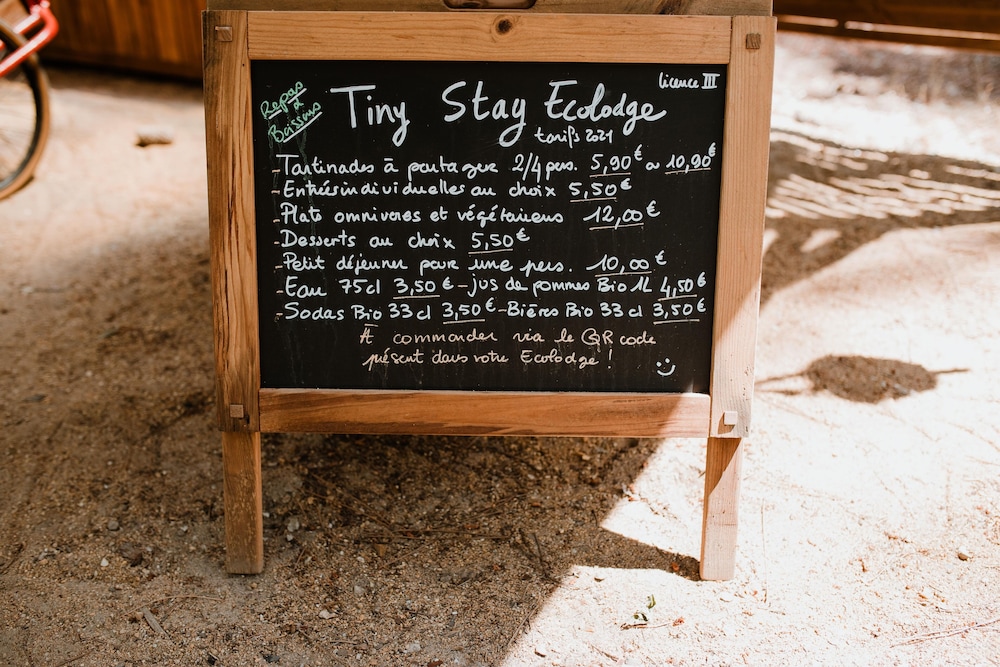 Repas & Boissons
Tiny Stay Ecolodge
Licence III
tarifs 2021
-Tartinades à partager 2/4 pers. 5,90€ ou 10,90€
-Entrées individuelles au choix 5,50€
-Plats omnivores et végétariens 12,00€
-Desserts au choix 5,50€
-Petit déjeuner pour une pers. 10,00€
-Eau 75cl 3,50€ -jus de pommes Bio 1L 4,50€
-Sodas Bio 33cl 3,50€ -Bières Bio 33cl 3,50€
A commander via le QR code
présent dans votre Ecolodge !